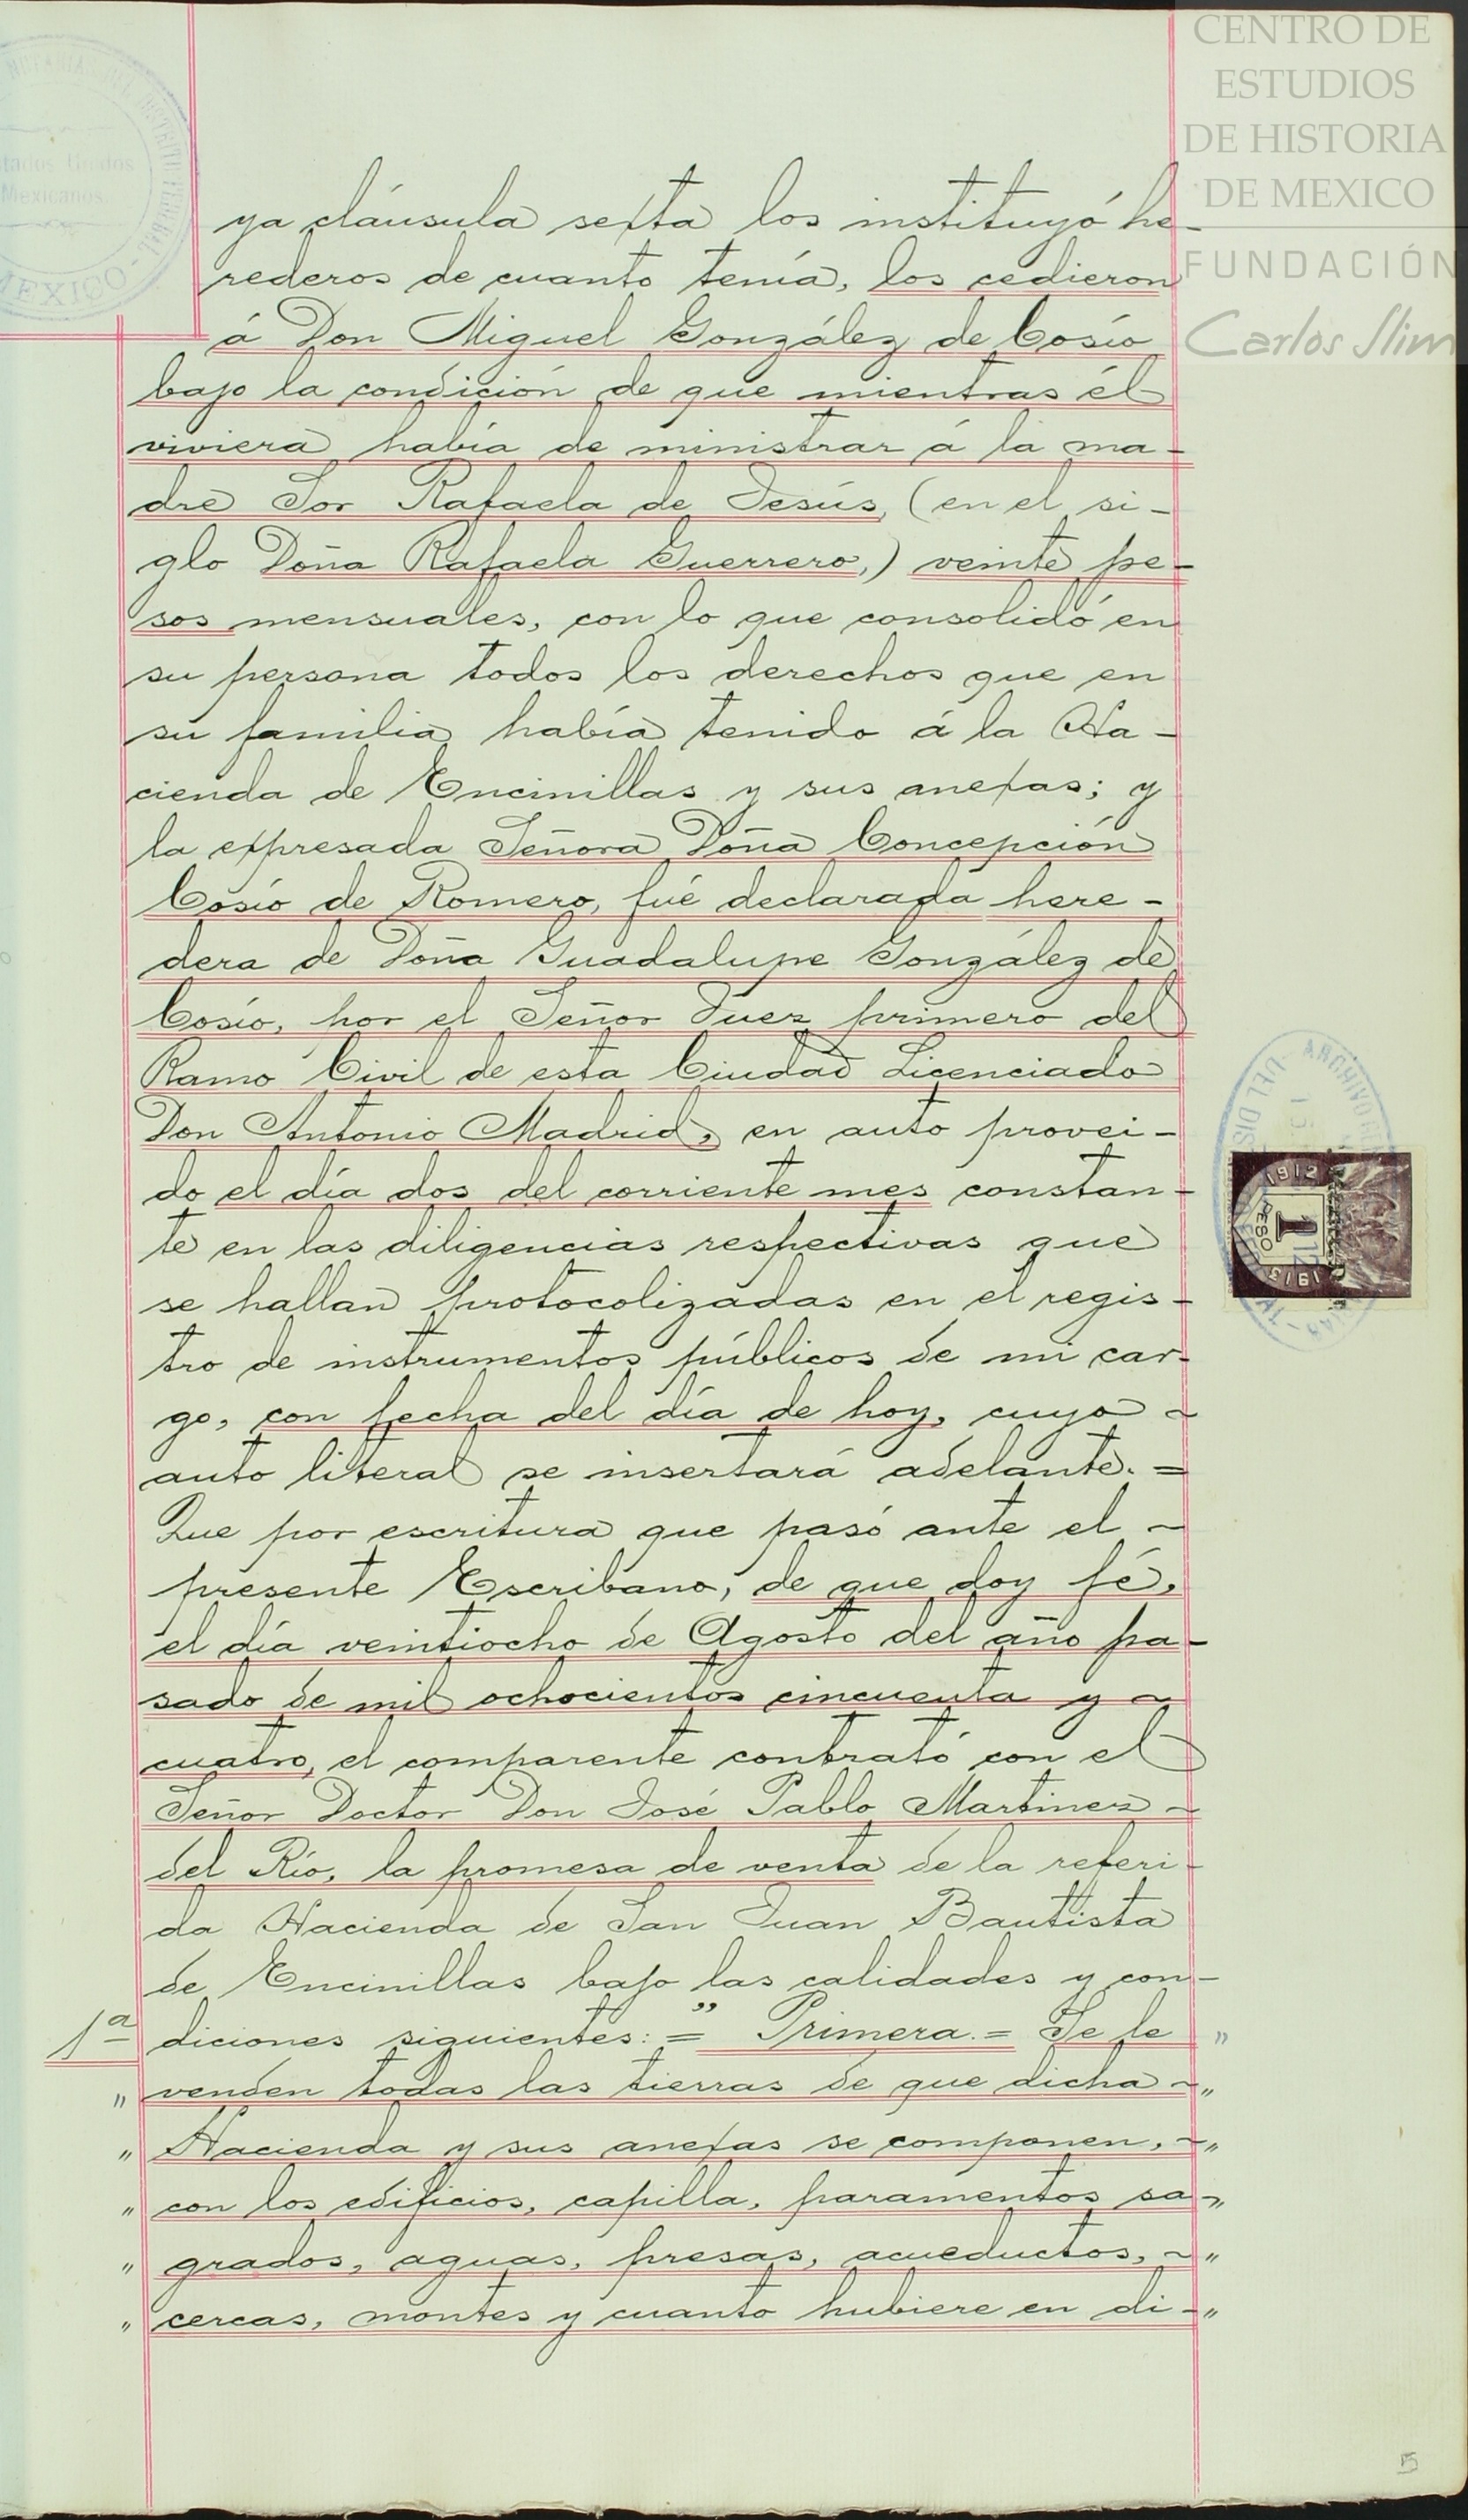 CENTRO DE
ESTUDIOS
DE HISTORIA
DE MEXICO
FUNDACIÓN
Carlos Slim
NOTARIAS DEL DISTRITO FEDERAL
Estados Unidos
Mexicanos
MEXICO
ya cláusula sexta los instituyó he-
rederos de cuanto tenía, los cedieron
á Don Miguel González de Cosío
bajo la condición de que mientras él
viviera había de ministrar á la ma-
dre Sor Rafaela de Jesús, (en el si-
glo Doña Rafaela Guerrero,) veinte pe-
sos mensuales, con lo que consolidó en
su persona todos los derechos que en
su familia había tenido á la Ha-
cienda de Encinillas y sus anexas; y
la expresada Señora Doña Concepción
Cosío de Romero, fué declarada here-
dera de Doña Guadalupe González de
Cosío, por el Señor Juez primero del
Ramo Civil de esta Ciudad Licenciado
Don Antonio Madrid, en auto provei-
do el día dos del corriente mes constan-
te en las diligencias respectivas que
se hallan protocolizadas en el regis-
tro de instrumentos públicos de mi car-
go, con fecha del día de hoy, cuyo ~
auto literal se insertará adelante. =
Que por escritura que pasó ante el ~
presente Escribano, de que doy fé,
el día veintiocho de Agosto del año pa-
sado de mil ochocientos cincuenta y ~
cuatro, el comparente contrató con el
Señor Doctor Don José Pablo Martinez ~
del Río, la promesa de venta de la referi-
da Hacienda de San Juan Bautista
de Encinillas bajo las calidades y con-
1ª diciones siguientes: = " Primera. = Se le "
" venden todas las tierras de que dicha ~ "
" Hacienda y sus anexas se componen, ~ "
" con los edificios, capilla, paramentos sa- "
" grados, aguas, presas, acueductos, ~ "
" cercas, montes y cuanto hubiere en di- "
1912
1
PESO
1913
5